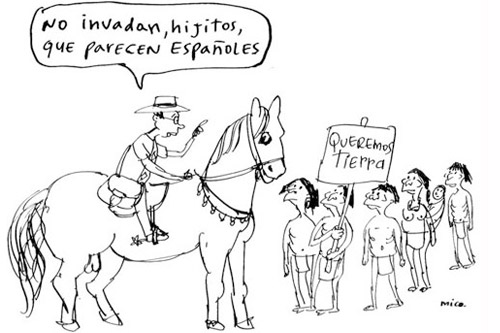 No invadan, hijitos,
que parecen Españoles
QUEREMOS
TIERRA
mico.